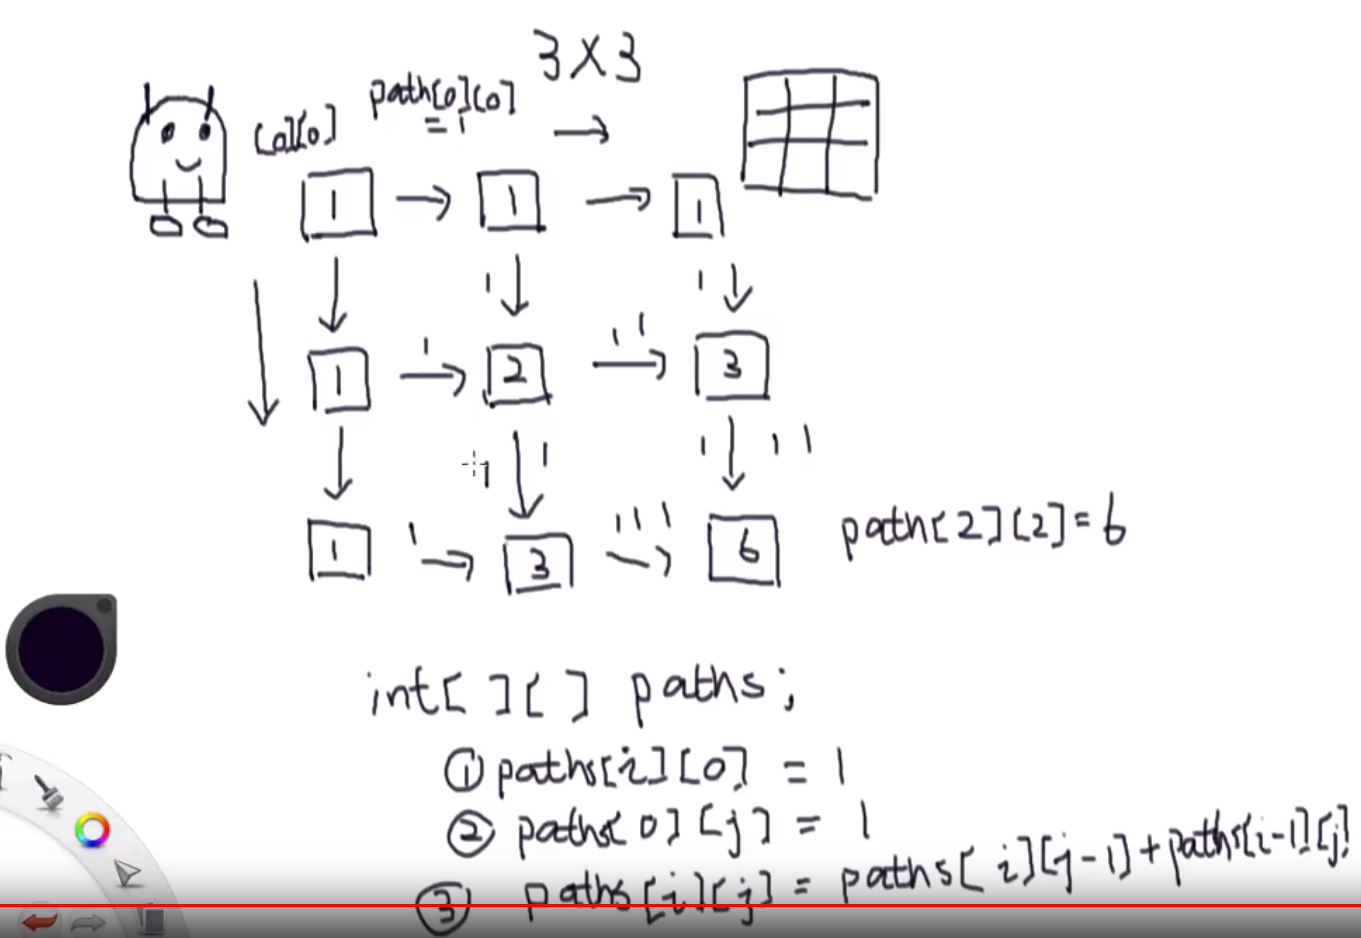 3 X 3
path[0][0]
= 1
[0][0]
1 → 1 → 1
1 1
1 1 1
1 2 3
1 1 1 1 1
1 1 1 1
1 3 6
path[2][2]=6
int[ ][ ] paths;
① paths[i][0] = 1
② paths[0][j] = 1
③ paths[i][j] = paths[i][j-1]+paths[i-1][j]